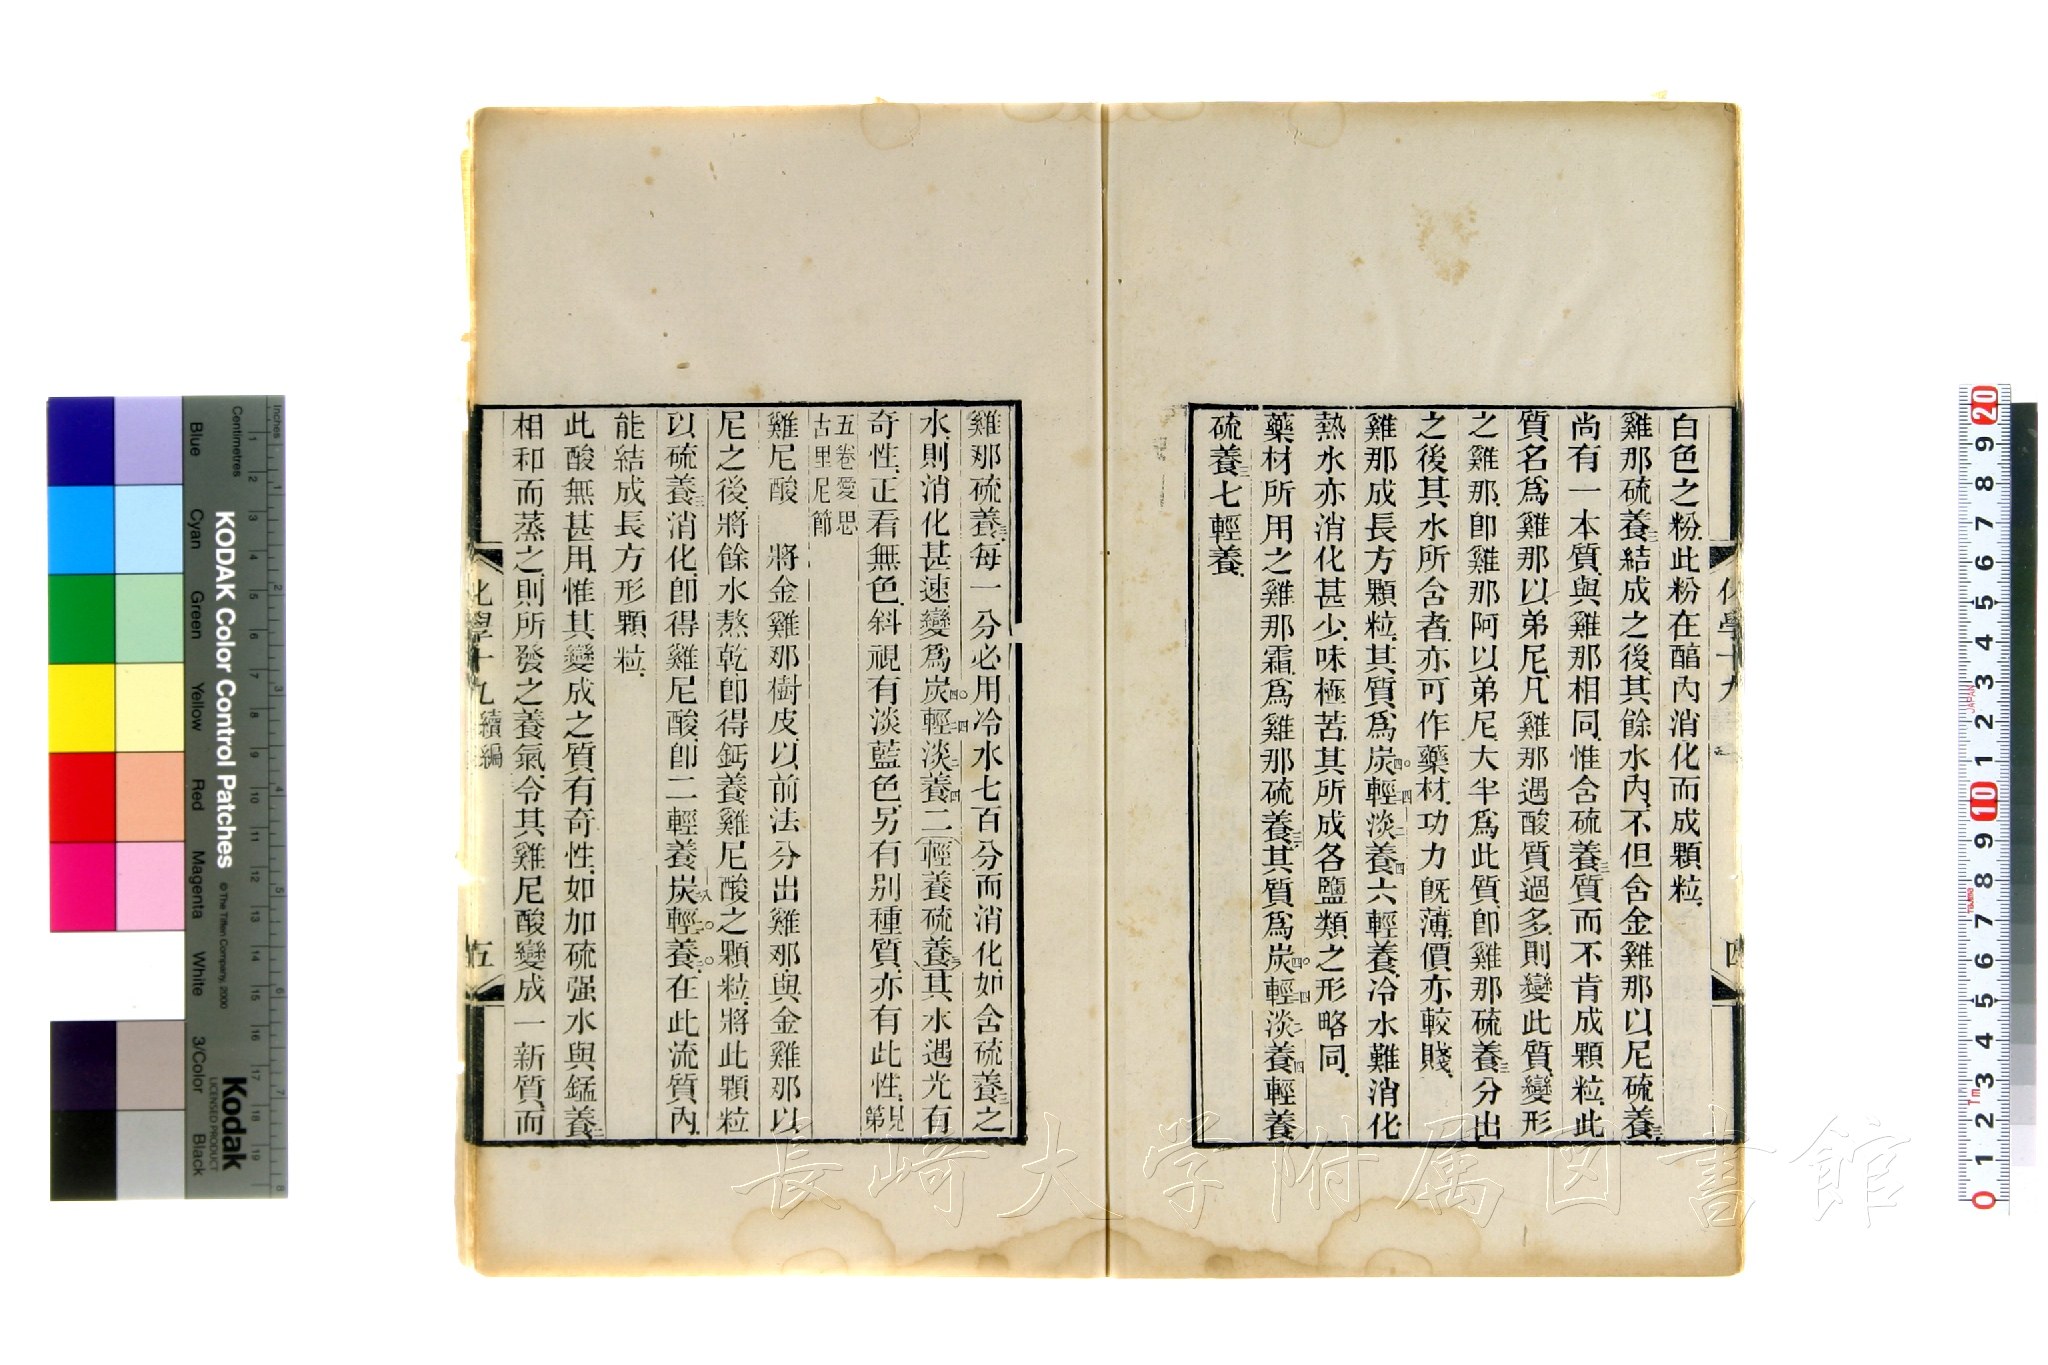 白色之粉此粉在醕內消化而成顆粒
雞那硫養三結成之後其餘水內不但含金雞那以尼硫養三
尚有一本質與雞那相同惟含硫養三質而不肯成顆粒此
質名爲雞那以弟尼凡雞那遇酸質過多則變此質變形
之雞那卽雞那阿以弟尼大半爲此質卽雞那硫養三分出
之後其水所含者亦可作藥材功力旣薄價亦較賤
雞那成長方顆粒其質爲炭四〇輕二四淡二養四六輕養冷水難消化
熱水亦消化甚少味極苦其所成各鹽類之形略同
藥材所用之雞那霜爲雞那硫養三其質爲炭四〇輕二四淡二養四輕養
硫養三七輕養
化學十九
四
雞那硫養三每一分必用冷水七百分而消化如含硫養三之
水則消化甚速變爲炭四〇輕二四淡二養四二(輕養硫養三)其水遇光有
奇性正看無色斜視有淡藍色另有別種質亦有此性見第
五卷愛思
古里尼節
雞尼酸 將金雞那樹皮以前法分出雞那與金雞那以
尼之後將餘水熬乾卽得鈣養雞尼酸之顆粒將此顆粒
以硫養三消化卽得雞尼酸卽二輕養炭二八輕二〇養二〇在此流質內
能結成長方形顆粒
此酸無甚用惟其變成之質有奇性如加硫强水與錳養二
相和而蒸之則所發之養氣令其雞尼酸變成一新質而
化學十九 續編
五
長崎大学附属図書館
KODAK Color Control Patches
©The Tiffen Company, 2000
Kodak
LICENSED PRODUCT
Inches
Centimetres
Blue
Cyan
Green
Yellow
Red
Magenta
White
3/Color
Black